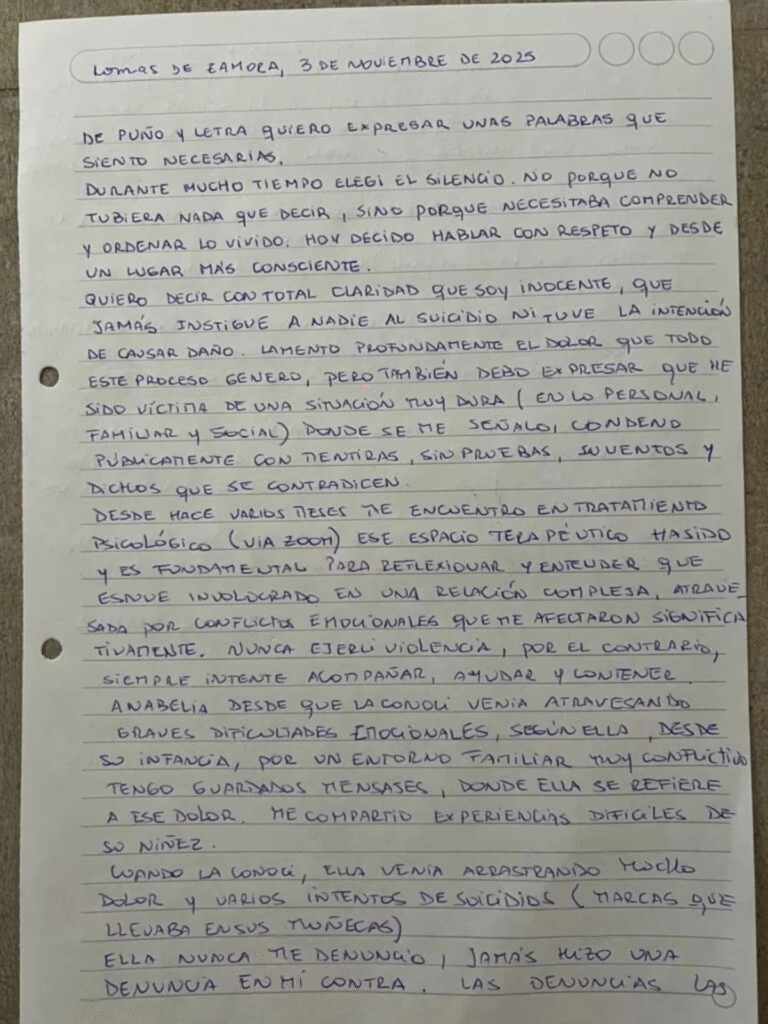 LOMAS DE ZAMORA, 3 DE NOVIEMBRE DE 2025
DE PUÑO Y LETRA QUIERO EXPRESAR UNAS PALABRAS QUE
SIENTO NECESARIAS.
DURANTE MUCHO TIEMPO ELEGI EL SILENCIO. NO PORQUE NO
TUBIERA NADA QUE DECIR, SINO PORQUE NECESITABA COMPRENDER
Y ORDENAR LO VIVIDO. HOY DECIDO HABLAR CON RESPETO Y DESDE
UN LUGAR MÁS CONSCIENTE.
QUIERO DECIR CON TOTAL CLARIDAD QUE SOY INOCENTE, QUE
JAMÁS INSTIGUE A NADIE AL SUICIDIO NI TUVE LA INTENCIÓN
DE CAUSAR DAÑO. LAMENTO PROFUNDAMENTE EL DOLOR QUE TODO
ESTE PROCESO GENERO, PERO TAMBIÉN DEBO EXPRESAR QUE HE
SIDO VÍCTIMA DE UNA SITUACIÓN MUY DURA (EN LO PERSONAL,
FAMILIAR Y SOCIAL) DONDE SE ME SEÑALO, CONDENO
PÚBLICAMENTE CON MENTIRAS, SIN PRUEBAS, INVENTOS Y
DICHOS QUE SE CONTRADICEN.
DESDE HACE VARIOS MESES ME ENCUENTRO EN TRATAMIENTO
PSICOLÓGICO (VIA ZOOM) ESE ESPACIO TERAPÉUTICO HA SIDO
Y ES FUNDAMENTAL PARA REFLEXIONAR Y ENTENDER QUE
ESTUVE INVOLOCRADO EN UNA RELACIÓN COMPLEJA, ATRAVE_
SADA POR CONFLICTOS EMOCIONALES QUE ME AFECTARON SIGNIFICA
TIVAMENTE. NUNCA EJERCI VIOLENCIA, POR EL CONTRARIO,
SIEMPRE INTENTE ACOMPAÑAR, AYUDAR Y CONTENER.
ANABELIA DESDE QUE LA CONOCI VENIA ATRAVESANDO
GRAVES DIFICULTADES EMOCIONALES, SEGÚN ELLA, DESDE
SU INFANCIA, POR UN ENTORNO FAMILIAR MUY CONFLICTIVO
TENGO GUARDADOS MENSAJES, DONDE ELLA SE REFIERE
A ESE DOLOR. ME COMPARTIO EXPERIENCIAS DIFICILES DE
SU NIÑEZ.
CUANDO LA CONOCI, ELLA VENIA ARRASTRANDO MUCHO
DOLOR Y VARIOS INTENTOS DE SUICIDIOS (MARCAS QUE
LLEVABA EN SUS MUÑECAS)
ELLA NUNCA ME DENUNCIO, JAMÁS HIZO UNA
DENUNCIA EN MÍ CONTRA. LAS DENUNCIAS LAS